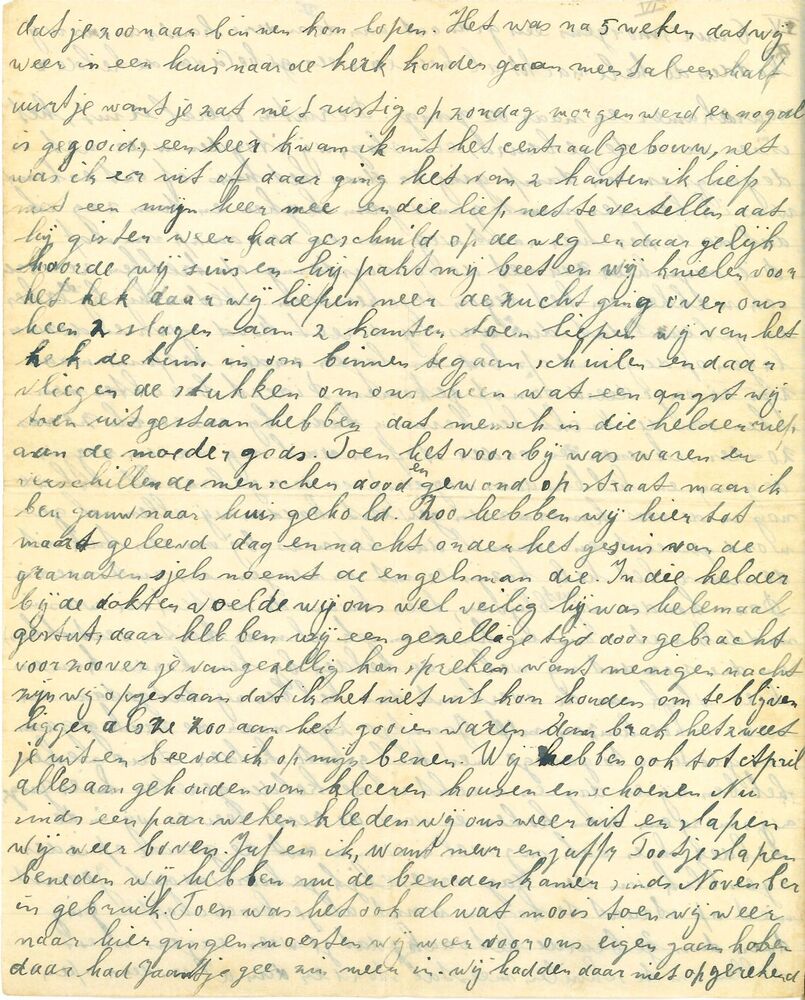 dat je zoo naar binnen kon lopen. Het was na 5 weken dat wij
weer in een huis naar de kerk konden gaan meestal een half
uurtje want je zat niet rustig op zondag morgen werd er nogal
is gegooid, een keer kwam ik uit het centraal gebouw, net
was ik er uit of daar ging het van 2 kanten ik liep
met een mijn heer mee en die liep net te vertellen dat
hij gister weer had geschuild op de weg en daar gelijk
hoorde wij suisen hij pakt mij beet en wij knielen voor
het hek daar wij liepen neer de zucht ging over ons
heen 2 slagen aan 2 kanten toen liepen wij van het
hek de tuin in om binnen te gaan schuilen en daar
vliegen de stukken om ons heen wat een angst wij
toen uitgestaan hebben dat mensch in die kelder riep
aan de moeder gods. Toen het voorbij was waren er
verschillende menschen dood en gewond op straat maar ik
ben gauw naar huis gehold. Zoo hebben wij hier tot
maart geleefd dag en nacht onder het gesuis van de
granaten sjels noemt de engelsman die. In die kelder
bij de dokter voelde wij ons wel veilig hij was helemaal
gestut, daar hebben wij een gezellige tijd doorgebracht
voor zoover je van gezellig kon spreken want menigen nacht
zijn wij opgestaan dat ik het niet uit kon houden om te blijven
liggen als ze zoo aan het gooien waren dan brak het zweet
je uit en beefde ik op mijn benen. Wij hebben ook tot April
alles aangehouden van kleeren kousen en schoenen Nu
sinds een paar weken kleden wij ons weer uit en slapen
wij weer boven. Juf en ik, want mevr en juffr Tootje slapen
beneden wij hebben nu de beneden kamer sinds November
in gebruik. Toen was het ook al wat moois toen wij weer
naar hier gingen moesten wij weer voor ons eigen gaan koken
daar had Jaantje geen zin meer in. wij hadden daar niet op gerekend